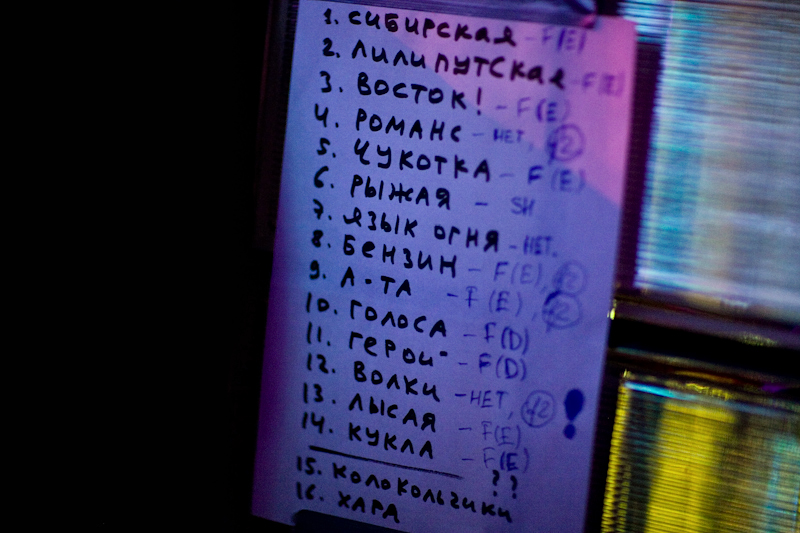 1. СИБИРСКАЯ - F(E)
2. ЛИЛИПУТСКАЯ - F(E)
3. ВОСТОК! - F(E)
4. РОМАНС - НЕТ, #2
5. ЧУКОТКА - F(E)
6. РЫЖАЯ - SH
7. ЯЗЫК ОГНЯ - НЕТ.
8. БЕНЗИН - F(E), #2
9. А-ТА - F(E), #2
10. ГОЛОСА - F(D)
11. ГЕРОИ - F(D)
12. ВОЛКИ - НЕТ, #2 !
13. ЛЫСАЯ - F(E)
14. КУКЛА - F(E)
??
15. КОЛОКОЛЬЧИКИ
16. ХАРА